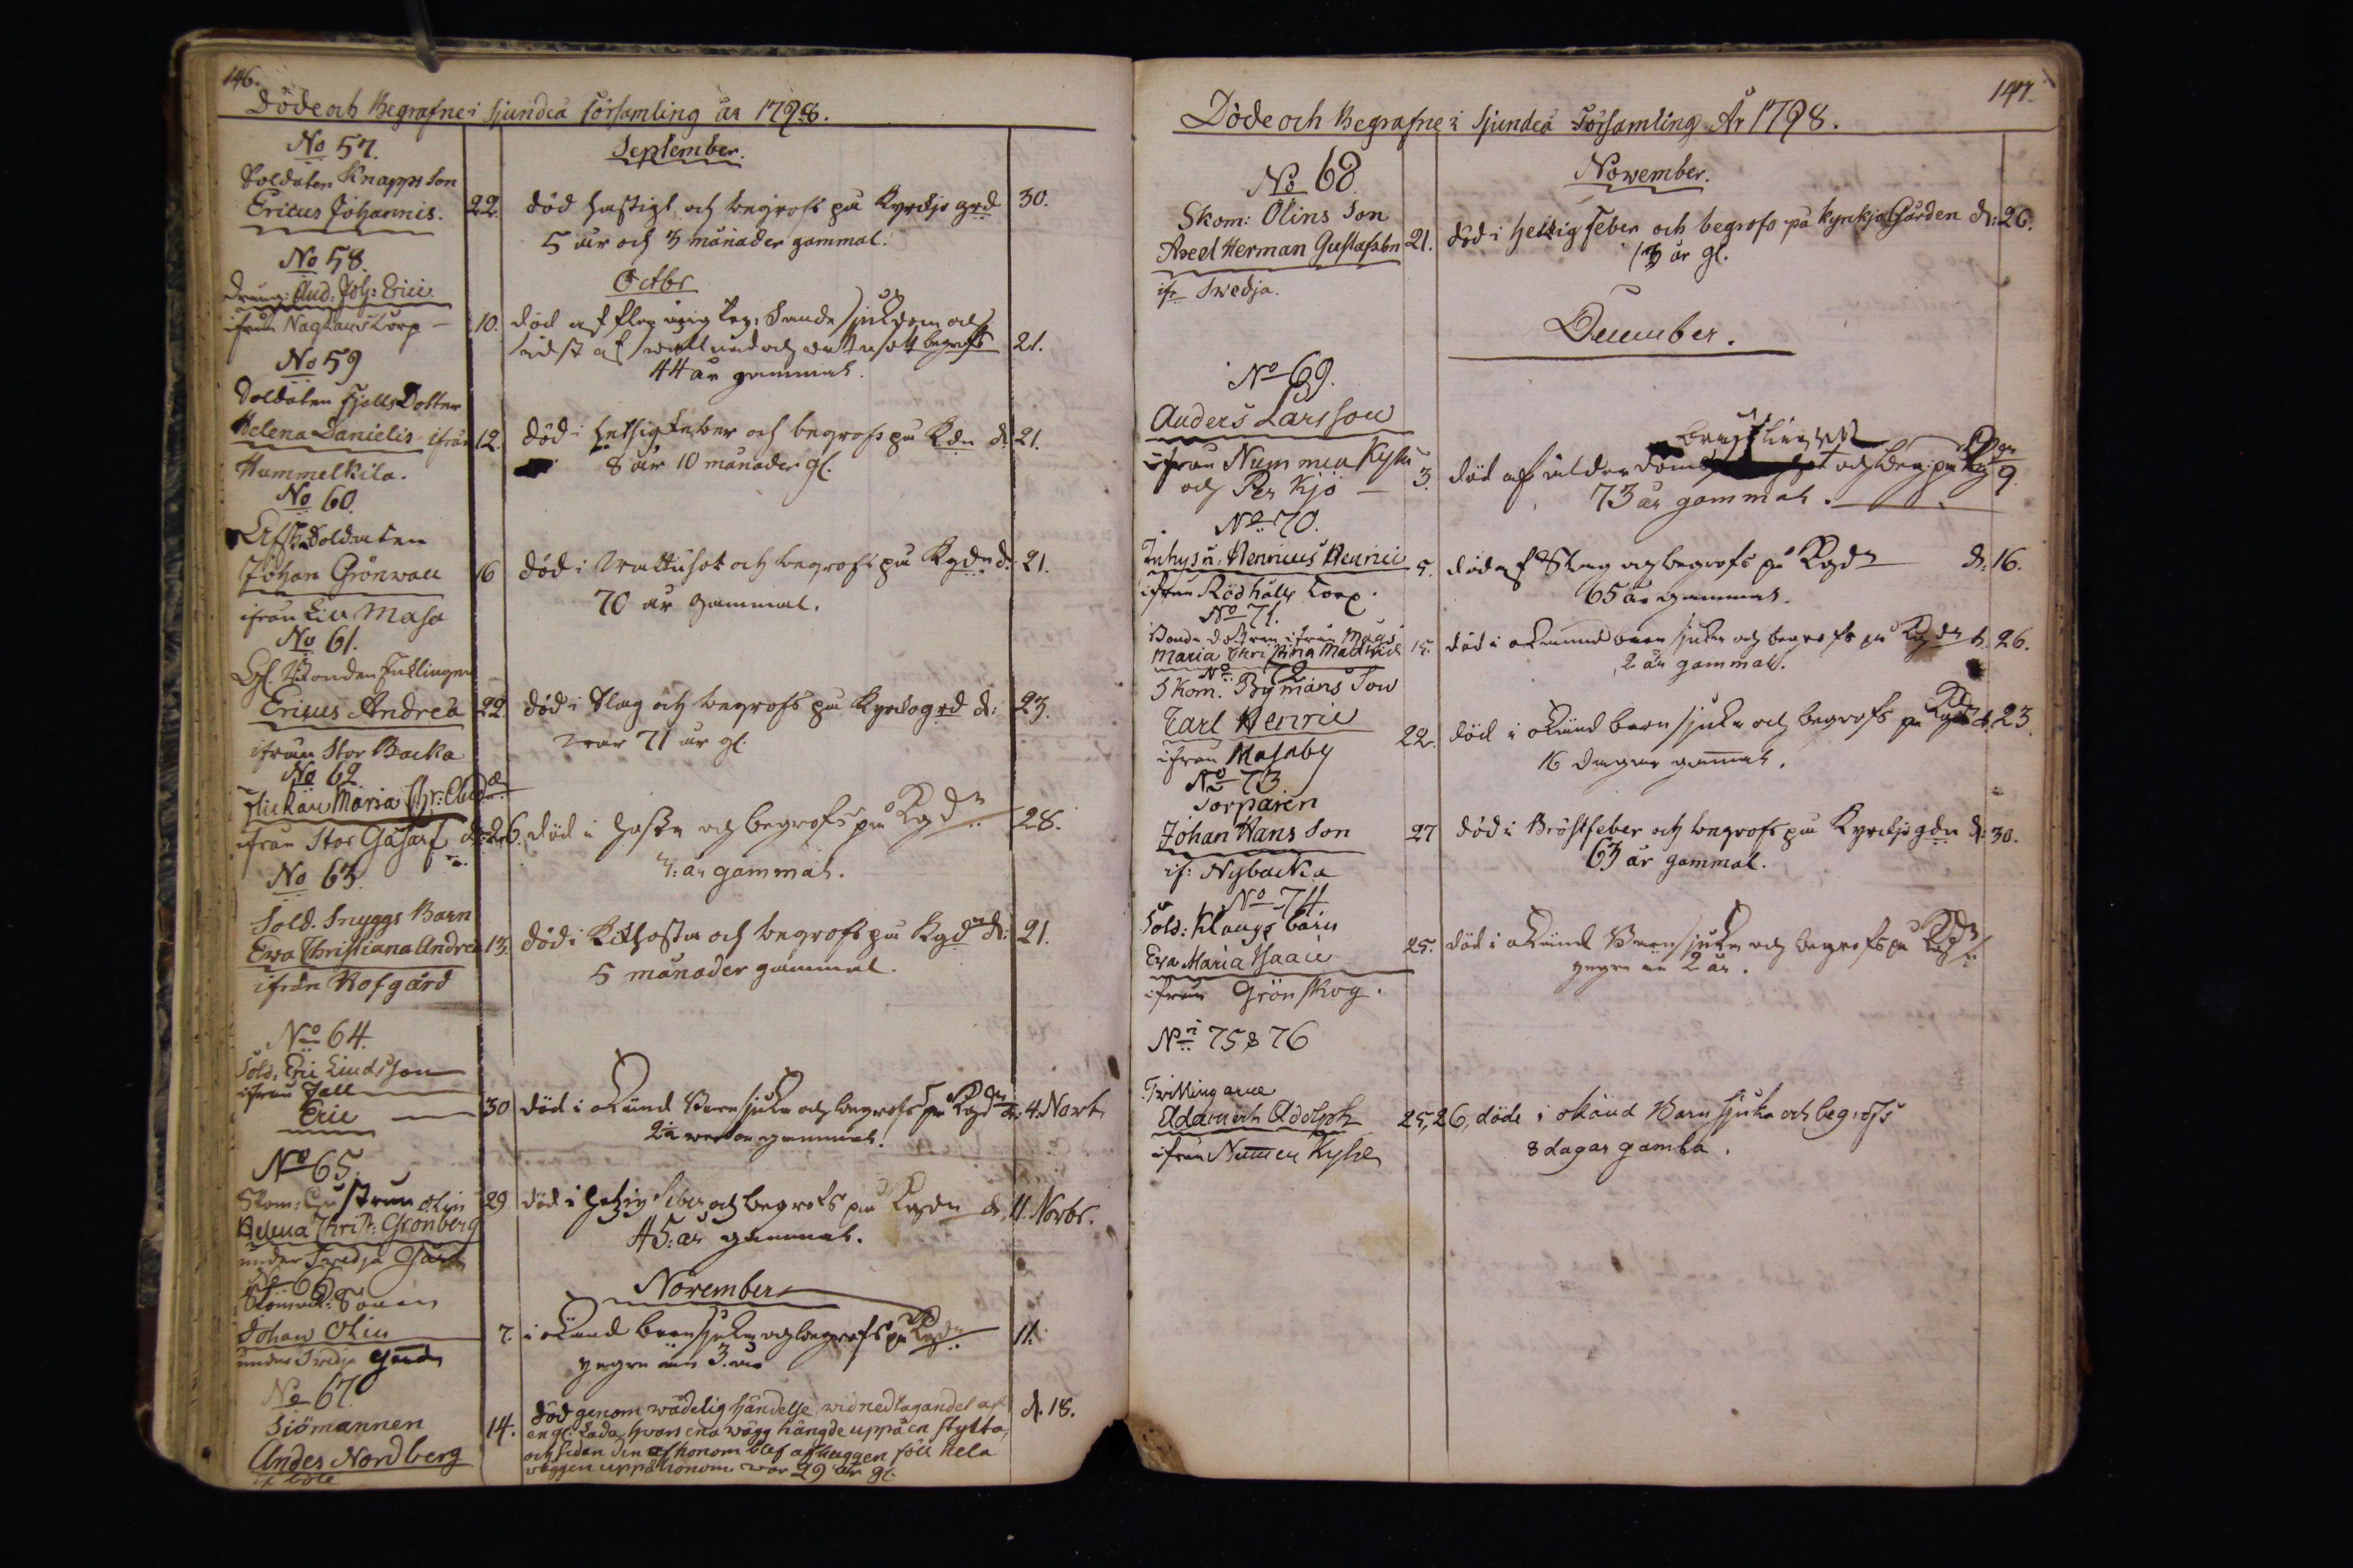 146.
Döde och Begrafne i Sjundeå Församling år 1798.
September.
No 57.
Soldaten Knapps Son
Ericus Johannis. 22. död hastigt och begrofs på Kyrckjo grd 30.
5 år och 3 månader gammal.
No 58.
Octbr
Dreng: And: Joh: Erici
ifrån Naglans Torp 10. död af sjukdom och
sidst af och wattusott begrofs 21.
44 år gammal.
No 59
Soldaten Fjells Dotter
Helena Danielis ifrån 12. död i hetsig feber och begrofs på Kdn d. 21.
8 år 10 månader gl.
Hummelkila.
No 60.
Afsk. Soldaten
Johan Grönwall 16 död i Wattusot och begrofs på Kgdn d. 21.
70 år gammal.
ifrån Lill Masa
No 61.
Gl. Bonden
Ericus Andreæ 22. död i Slag och begrofs på Kyrckogrd d: 23.
war 71 år gl.
ifrån Stor Backa
No 62
Flickan Maria
ifrån Stor d: 26. död i hosta och begrofs på Kgdn 28.
3: år gammal.
No 63.
Sold. Snyggs Barn
Ewa Christiana Andreæ 13. död i Kikhosta och begrofs på Kgdn d: 21.
5 månader gammal.
ifrån Hofgård
No 64.
Sold. Eric Linds Son
ifrån Fall
Eric 30 död i okänd Barnsjuka och begrofs på Kgdn d. 4. Novbr
2½ weckor gammal.
No 65.
Skom: Hustrun Olin 29. död i hetzig feber och begrofs på Kgdn d. 11. Novbr.
Helena Christ: Grönberg
45: år gammal.
under Swedja Gård
November
No 66
Skomak: Sonen
Johan Olin 7. i okänd barnsjuka och begrofs på Kgdn 11.
yngre än 3 år
under Swedja Gård
No 67
Siömannen 14. död genom wådelig händelse, wid nedtagandet af d. 18.
en gl: Lada, hvars ena wägg hängde uppå en stytta,
och sedan den af honom blef afhuggen föll hela
Andes Nordberg
wäggen uppå honom war 29 år gl.
147.
Döde och Begrafne i Sjundeå Församling År 1798.
November.
No 68.
Skom: Olins Son
Axel Herman Gustafsson 21. död i hetzig feber och begrofs på Kyrkjo Gården d: 26.
13 år gl.
ifr Swedja.
December.
No 69.
Anders Larsson
ifrån Nummen Kylä 3. död af ålderdoms bräcklighet och begr: på Kgdn 9.
och Per Kjö
73 år gammal.
No 70.
Inhys n. Henricus Henrici 5. död af Slag och begrofs på Kgdn d. 16.
ifrån Rödhälls Torp.
65 år gammal.
No 71.
Bonde dottren ifrån Mågs
Maria Christina 15. död i okänd barnsjuka och begrofs på Kgdn d. 26.
2 år gammal.
No 72
Skom. Bymans Son
Carl Henric 22. död i okänd barnsjuka och begrofs på Kgdn d. 23.
ifrån Masaby
16 dagar gammal.
No 73.
Torparen
Johan Hans Son 27 död i Bröstfeber och begrofs på Kyrckjo gdn d: 30.
63 år gammal.
if: Nybacka
No 74
Sold: Klangs barn
Eva Maria Isaaci 25. död i okänd Barnsjuka och begrofs på Kgdn
yngre än 2 år.
ifrån Grönskog.
Nri 75 & 76
Twillingarne
Adam och Adolph 25, 26, döde i okänd Barnsjuka och begrofs
ifrån Nummen Kyle
8 dagar gamla.